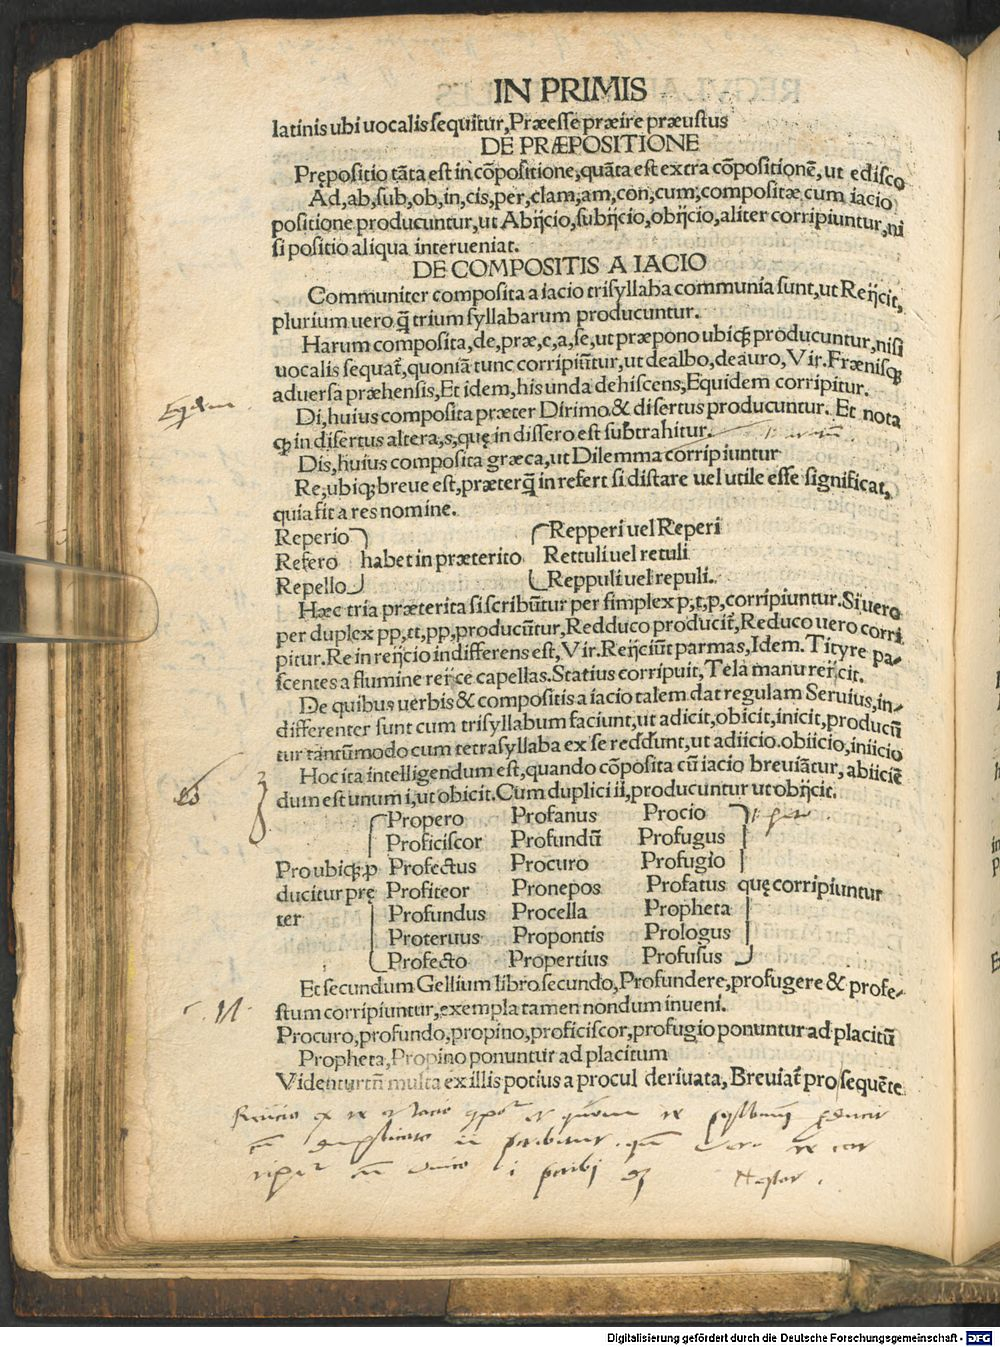 IN PRIMIS
latinis ubi uocalis sequitur, Præesse præire præustus
DE PRÆPOSITIONE
Prępositio tāta est in cōpositione, quāta est extra cōpositionē, ut edisco
Ad, ab, sub, ob, in, cis, per, clam, am, con, cum, compositæ cum iacio
positione producuntur, ut Abijcio, subijcio, obijcio, aliter corripiuntur, ni
si positio aliqua interueniat.
DE COMPOSITIS A IACIO
Communiter composita a iacio trisyllaba communia sunt, ut Reijcit,
plurium uero q̄ trium syllabarum producuntur.
Harum composita, de, præ, e, a, se, ut præpono ubiq; producuntur, nisi
uocalis sequat̄, quoniā tunc corripiūtur, ut dealbo, deauro, Vir. Frænisq;
aduersa præhensis, Et idem, his unda dehiscens, Equidem corripitur.
Di, huius composita præter Dirimo & disertus producuntur. Et nota
q; in disertus altera, s, quę in dissero est subtrahitur.
Dis, huius composita græca, ut Dilemma corripiuntur
Re, ubiq; breue est, præterq̄ in refert si distare uel utile esse significat,
quia fit a res nomine.
Reperio Repperi uel Reperi
Refero habet in præterito Rettuli uel retuli
Repello Reppuli uel repuli.
Hæc tria præterita si scribūtur per simplex p, t, p, corripiuntur. Si uero
per duplex pp, tt, pp, producūtur, Redduco producit̄, Reduco uero corri
pitur. Re in reijcio indifferens est, Vir. Reijciūt parmas, Idem. Tityre pa-
scentes a flumine reijce capellas. Statius corripuit, Tela manu reijcit.
De quibus uerbis & compositis a iacio talem dat regulam Seruius, in-
differenter sunt cum trisyllabum faciunt, ut adicit, obicit, inicit, producū
tur tantūmodo cum tetrasyllaba ex se reddūnt, ut adiicio. obiicio, iniicio
Hoc ita intelligendum est, quando cōposita cū iacio breuiātur, abiiciē
dum est unum i, ut obicit. Cum duplici ii, producuntur ut obijcit.
Propero Profanus Procio
Proficiscor Profundū Profugus
Pro ubiq; .p Profectus Procuro Profugio
ducitur prę Profiteor Pronepos Profatus quę corripiuntur
ter Profundus Procella Propheta
Proteruus Propontis Prologus
Profecto Propertius Profusus
Et secundum Gellium libro secundo, Profundere, profugere & profe-
stum corripiuntur, exempla tamen nondum inueni.
Procuro, profundo, propino, proficiscor, profugio ponuntur ad placitū
Propheta, Propino ponuntur ad placitum
Videntur tn̄ multa ex illis potius a procul deriuata, Breuiat̄ pro sequēte
Digitalisierung gefördert durch die Deutsche Forschungsgemeinschaft - DFG